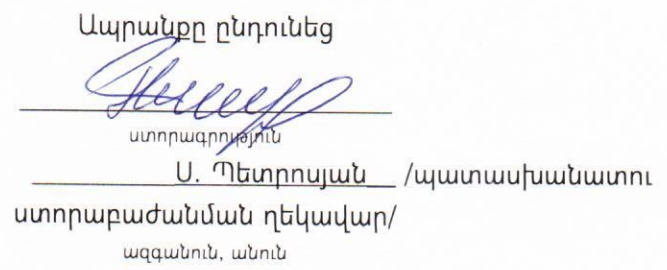 Ապրանքը ընդունեց
ստորագրություն
Ս. Պետրոսյան /պատասխանատու
ստորաբաժանման ղեկավար/
ազգանուն, անուն